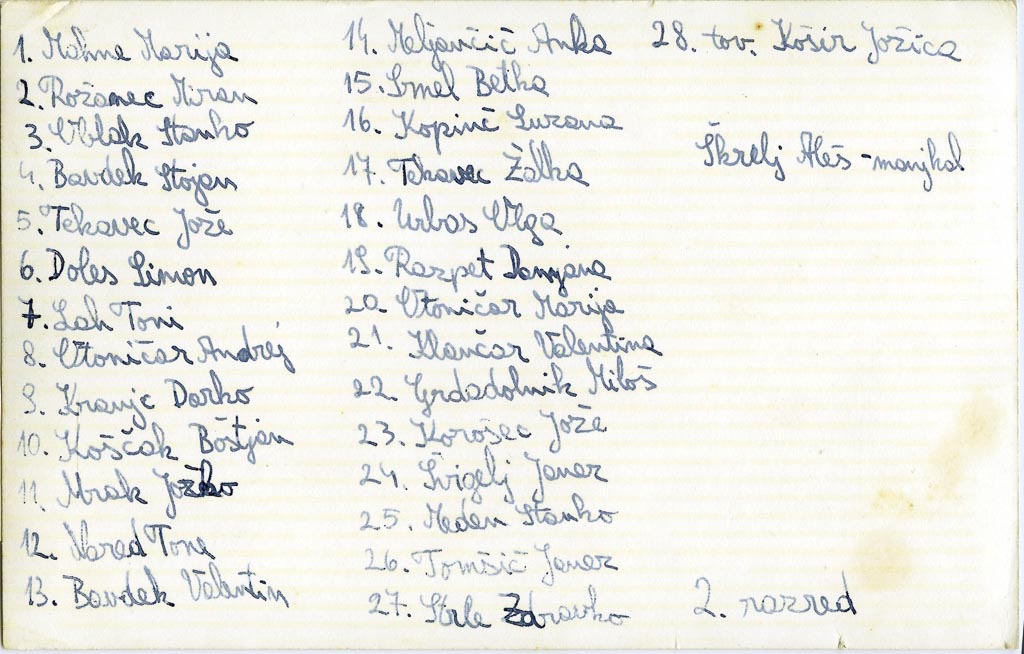 1. Mahne Marija
2. Rožanec Miran
3. Oblak Stanko
4. Bavdek Stojan
5. Tekavec Jože
6. Doles Simon
7. Lah Toni
8. Otoničar Andrej
9. Kranjc Darko
10. Koščak Boštjan
11. Mrak Jožko
12. Nared Tone
13. Bavdek Valentin
14. Meljančič Anka
15. Srmel Betka
16. Kopinč Suzana
17. Tekavec Žalka
18. Urbas Olga
19. Razpet Damjana
20. Otoničar Marija
21. Klančar Valentina
22. Grdadolnik Miloš
23. Korošec Jože
24. Švigelj Janez
25. Meden Stanko
26. Tomšič Janez
27. Strle Zdravko
28. tov. Košir Jožica
Škrelj Aleš - manjkal
2. razred